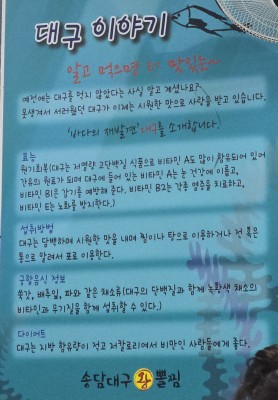 대구 이야기
알고 먹으면 더 맛있는~
예전에는 대구를 먹지 않았다는 사실 알고 계셨나요?
못생겨서 서러웠던 대구가 이제는 시원한 맛으로 사랑을 받고 있습니다.
'바다의 재발견' 대구를 소개합니다.
효능
원기회복(대구는 저열량 고단백질 식품으로 비타민 A도 많이 함유되어 있어
간유의 원료가 되며 대구에 들어 있는 비타민 A는 눈 건강에 이롭고,
비타민 B1은 감기를 예방해 준다. 비타민 B2는 각종 염증을 치료하고,
비타민 E는 노화를 방지한다.)
섭취방법
대구는 담백하며 시원한 맛을 내며 찜이나 탕으로 이용하거나 전 혹은
통으로 말려서 포로 이용한다.
궁합음식 정보
쑥갓, 배추잎, 파와 같은 채소류(대구의 단백질과 함께 녹황색 채소의
비타민과 무기질을 함께 섭취할 수 있다.)
다이어트
대구는 지방 함유량이 적고 저칼로리여서 비만인 사람들에게 좋다.
송담대구 왕 뽈찜